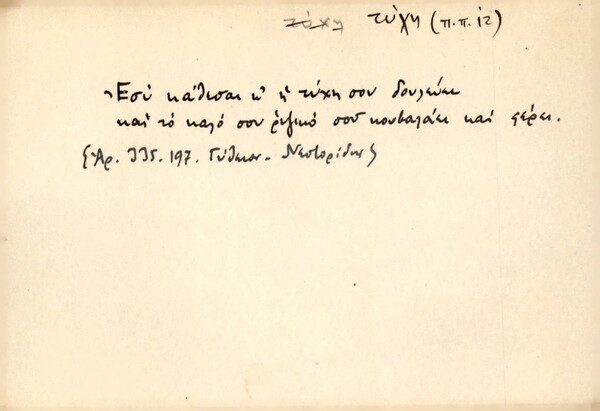 τύχη τύχη (π.π. ἰζ)
Ἐσὺ κάθεσαι κ' ἡ τύχη σου δουλεύει
καὶ τὸ καλό σου ῥιζικό σοῦ κουβαλάει καὶ φέρει.
(Ἀρ. 335. 197. Γύθειον - Νεστορίδης)